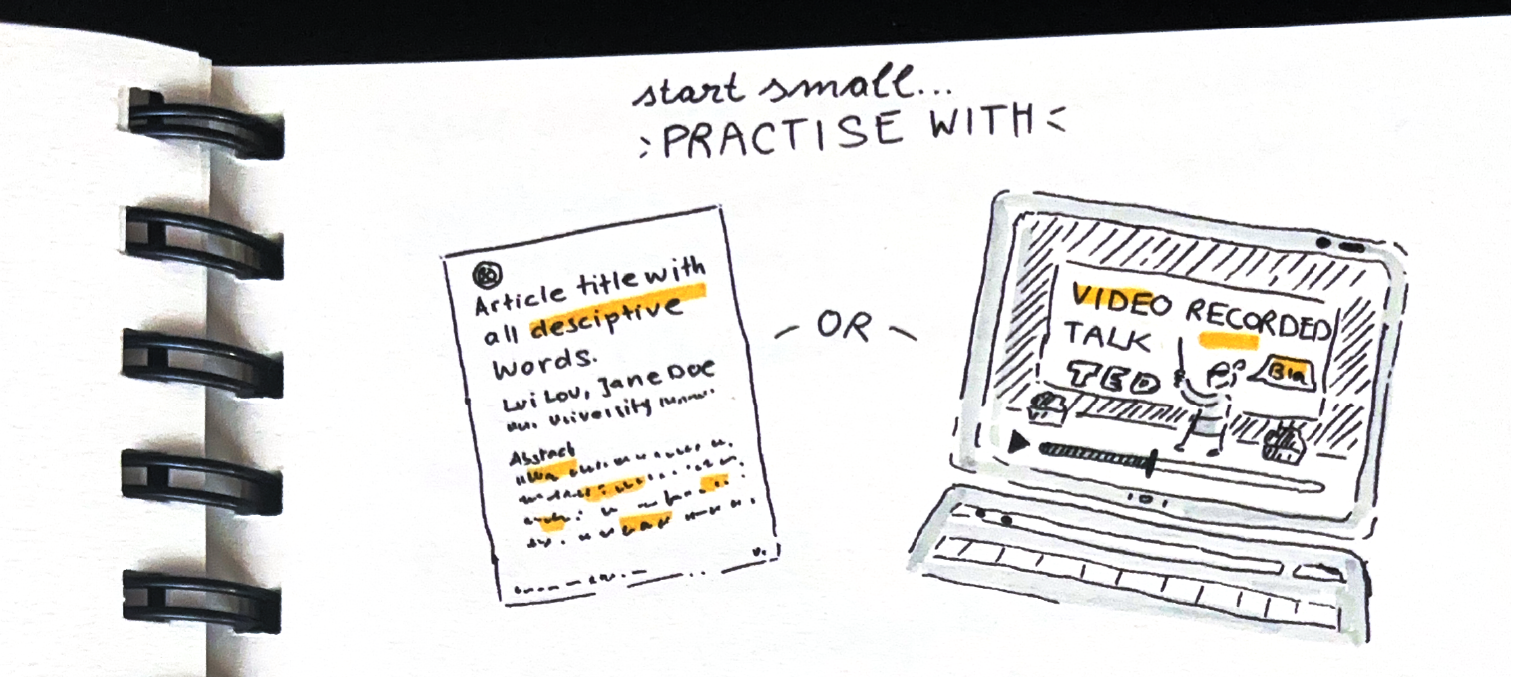 start small...
PRACTISE WITH
Article title with
all desciptive
words.
Lui Lou, Jane Doe
University
Abstract
OR
VIDEO RECORDED
TALK
TED